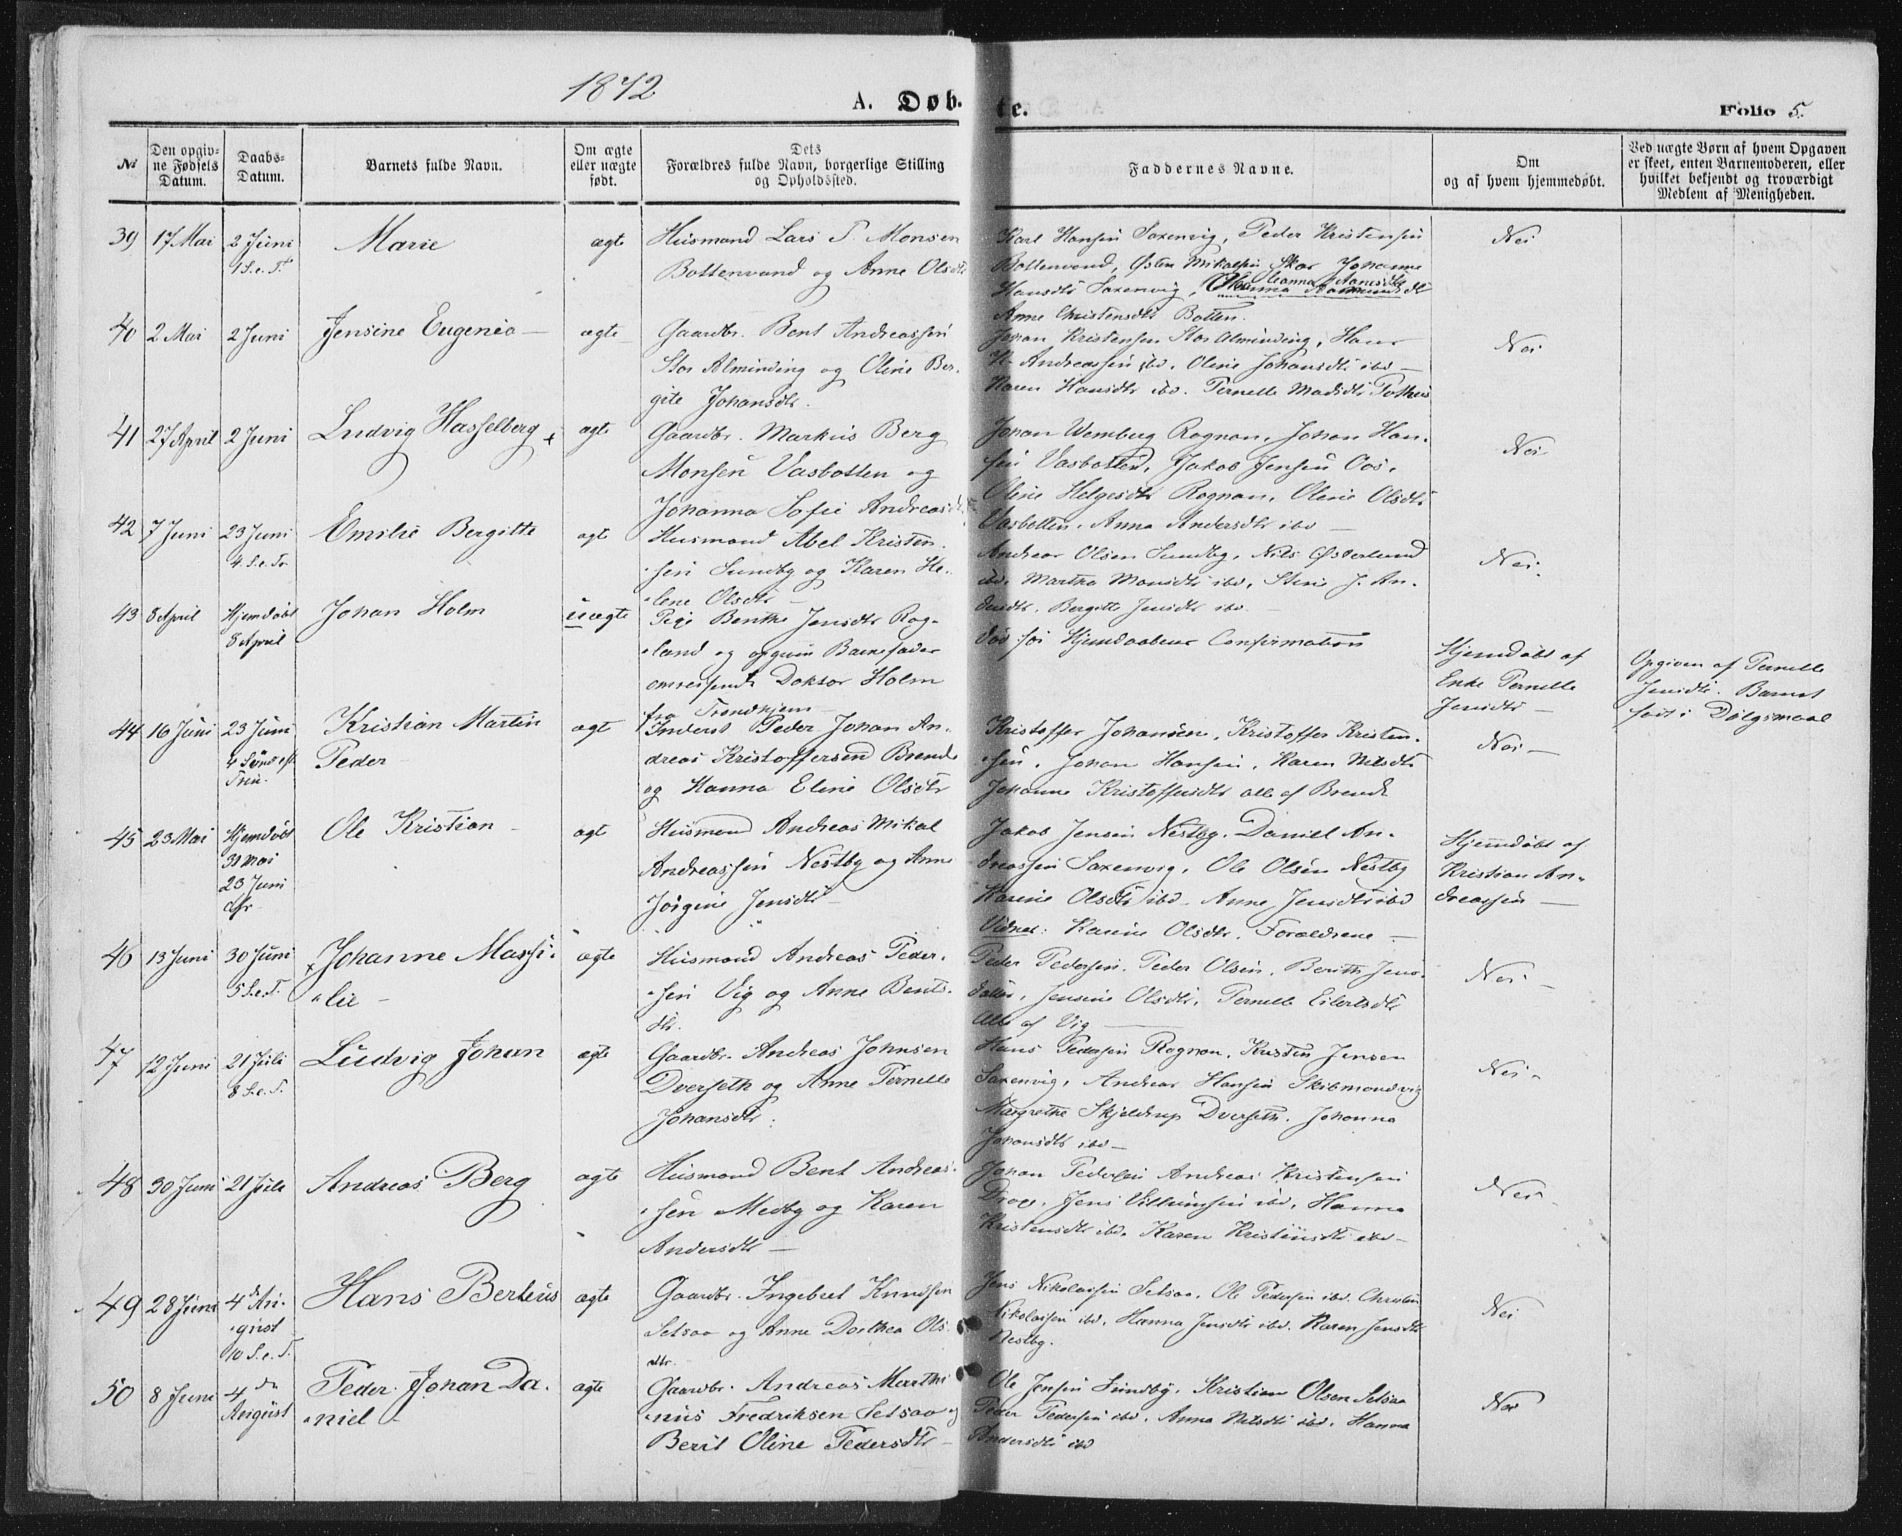 1872
A. Døb-
te.
Folio 5.
№
Den opgiv-
ne Fødsels
Datum.
Daabs-
Datum.
Barnets fulde Navn.
Om ægte
eller uægte
født.
Dets
Forældres fulde Navn, borgerlige Stilling
og Opholdssted.
Faddernes Navne.
Om
og af hvem hjemmedøbt.
Ved uægte Børn af hvem Opgaven
er skeet, enten Barnemoderen, eller
hvilket bekjendt og troværdigt
Medlem af Menigheden.
39 17 Mai 2 Juni
1 S. e. T.
Marie
ægte
Husmand Lars P. Monsen
Bottenvand og Anne Olsdtr
Karl Hansen Saxenvig, Peder Kristensen
Bottenvand, Østen Mikalsen Skar Johanne
Hansdtr Saxenvig,
Anne Christensdtr Botten.
Nei
40 2 Mai 2 Juni
Jensine Eugenia
ægte
Gaardbr. Bent Andreassen
Stor Alminding og Oline Ber-
gite Johansdtr.
Johan Kristensen Stor Alminding, Hans
H. Andreassen ibd. Oline Johansdtr ibd
Karen Hansdtr ibd. Pernelle Madsdtr
Nei
41 27 April 2 Juni
Ludvig Hasselberg
ægte
Gaardbr. Markus Berg
Monsen Vasbotten og
Johanna Sofie Andreasdtr
Johan Wemberg Rognan, Johan Han-
sen Vasbotten, Jakob Jensen Oos,
Oline Helgesdtr Rognan, Oline Olsdtr
Vasbotten, Anna Andersdtr ibd
Nei
42 7 Juni 23 Juni
4 S. e. Tr
Emilie Bergitte
ægt
Husmand Abel Kristen-
sen Sundby og Karen He-
lene Olsdtr
Andreas Olsen Sundby, Nils Østerlund
ibd. Martha Monsdtr ibd, Stine J. An-
dersdtr, Bergitte Jensdtr ibd.
Nei
43 8 April Hjemdøbt
8 April
Johan Holm
uægte
Pige Benthe Jensdtr Rog-
land og opgiven Barnefader
omreisende Doktor Holm
fra Trondhjem
død før Hjemdaabens Confirmation
Hjemdøbt af
Enke Pernelle
Jensdtr
Opgiven af Pernelle
Jensdtr. Barnet
født i Dølgsmaal
44 16 Juni 23 Juni
4 Sønd eft
Trin.
Kristian Martin
Peder
ægt
Inderst Peder Johan An-
dreas Kristoffersen Brende
og Hanna Eline Olsdtr
Kristoffer Johansen, Kristoffer Kristen-
sen, Johan Hansen, Karen Nilsdtr
Johanne Kristoffersdtr alle af Brende
Nei
45 23 Mai Hjemdøbt
30 Mai
23 Juni
Ole Kristian
ægt
Husmand Andreas Mikal
Andreassen Nestby og Anne
Jørgine Jensdtr
Jakob Jensen Nestby. Daniel An-
dreassen Saxenvig, Ole Olsen Nestby
Karine Olsdtr ibd. Anne Jensdtr ibd
Vidner: Karine Olsdtr, Forældrene
Hjemdøbt af
Kristian An-
dreassen
46 13 Juni 30 Juni
5 S. e. T.
Johanne Massi-
lie
ægte
Husmand Andreas Peder-
sen Vig og Anne Bents-
dtr.
Peder Pedersen, Peder Olsen, Berith Jens-
datter, Jensine Olsdtr, Pernelle Eilertsdtr
Alle af Vig
Nei
47 12 Juni 21 Juli
8 S. e. T.
Ludvig Johan
ægte
Gaardbr. Andreas Johnsen
Dverseth og Anne Pernelle
Johansdtr.
Hans Pedersen Rognan, Kristen Jensen
Saxenvig, Andreas Hansen Skibmandvig
Margrethe Skjeldrup Dverseth, Johanna
Johansdtr ibd
Nei
48 30 Juni 21 Juli
Andreas Berg
ægte
Husmand Bent Andreas-
sen Medby og Karen
Andersdtr
Johan Pedersen Andreas Kristensen
Drage, Jens Villumsen ibd, Hanna
Kristensdtr ibd, Karen Kristensdtr ibd
Nei
49 28 Juni 4de Au-
gust
10 S. e. T.
Hans Berteus
ægte
Gaardbr. Ingebret Knudsen
Setsaa og Anne Dorthea Ols-
dtr.
Jens Nikolaisen Setsaa, Ole Pedersen ibd. Christen
Nikolaisen ibd, Hanna Jensdtr ibd. Karen Jensdtr
Nestby.
Nei
50 8 Juni 4de
August
Peder Johan Da-
niel
ægte
Gaardbr. Andreas Marthi-
nus Fredriksen Setsaa og
Berit Oline Pedersdtr
Ole Jensen Sundby, Kristian Olsen Setsaa
Peder Pedersen ibd, Anna Nilsdtr ibd, Hanna
Andersdtr ibd
Nei